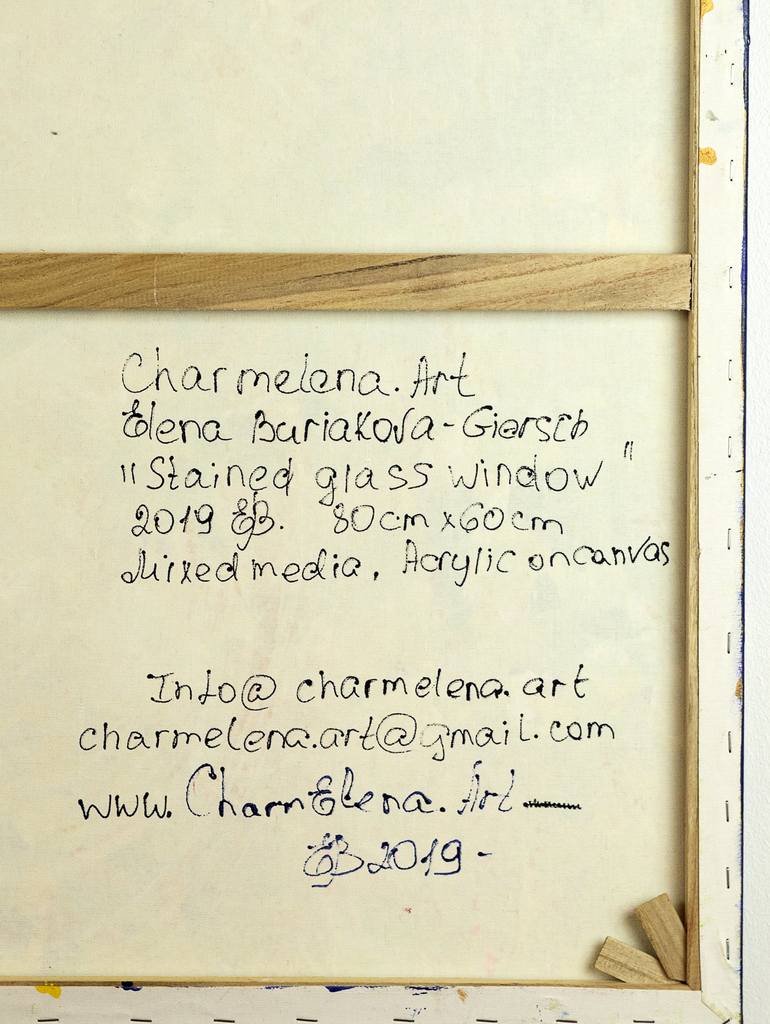 Charmelena.Art
Elena Buriakova-Giersch
"Stained glass window"
2019 EB. 80cm x 60cm
Mixed media, Acrylic on canvas
Info@charmelena.art
charmelena.art@gmail.com
www.CharmElena.Art
EB 2019-